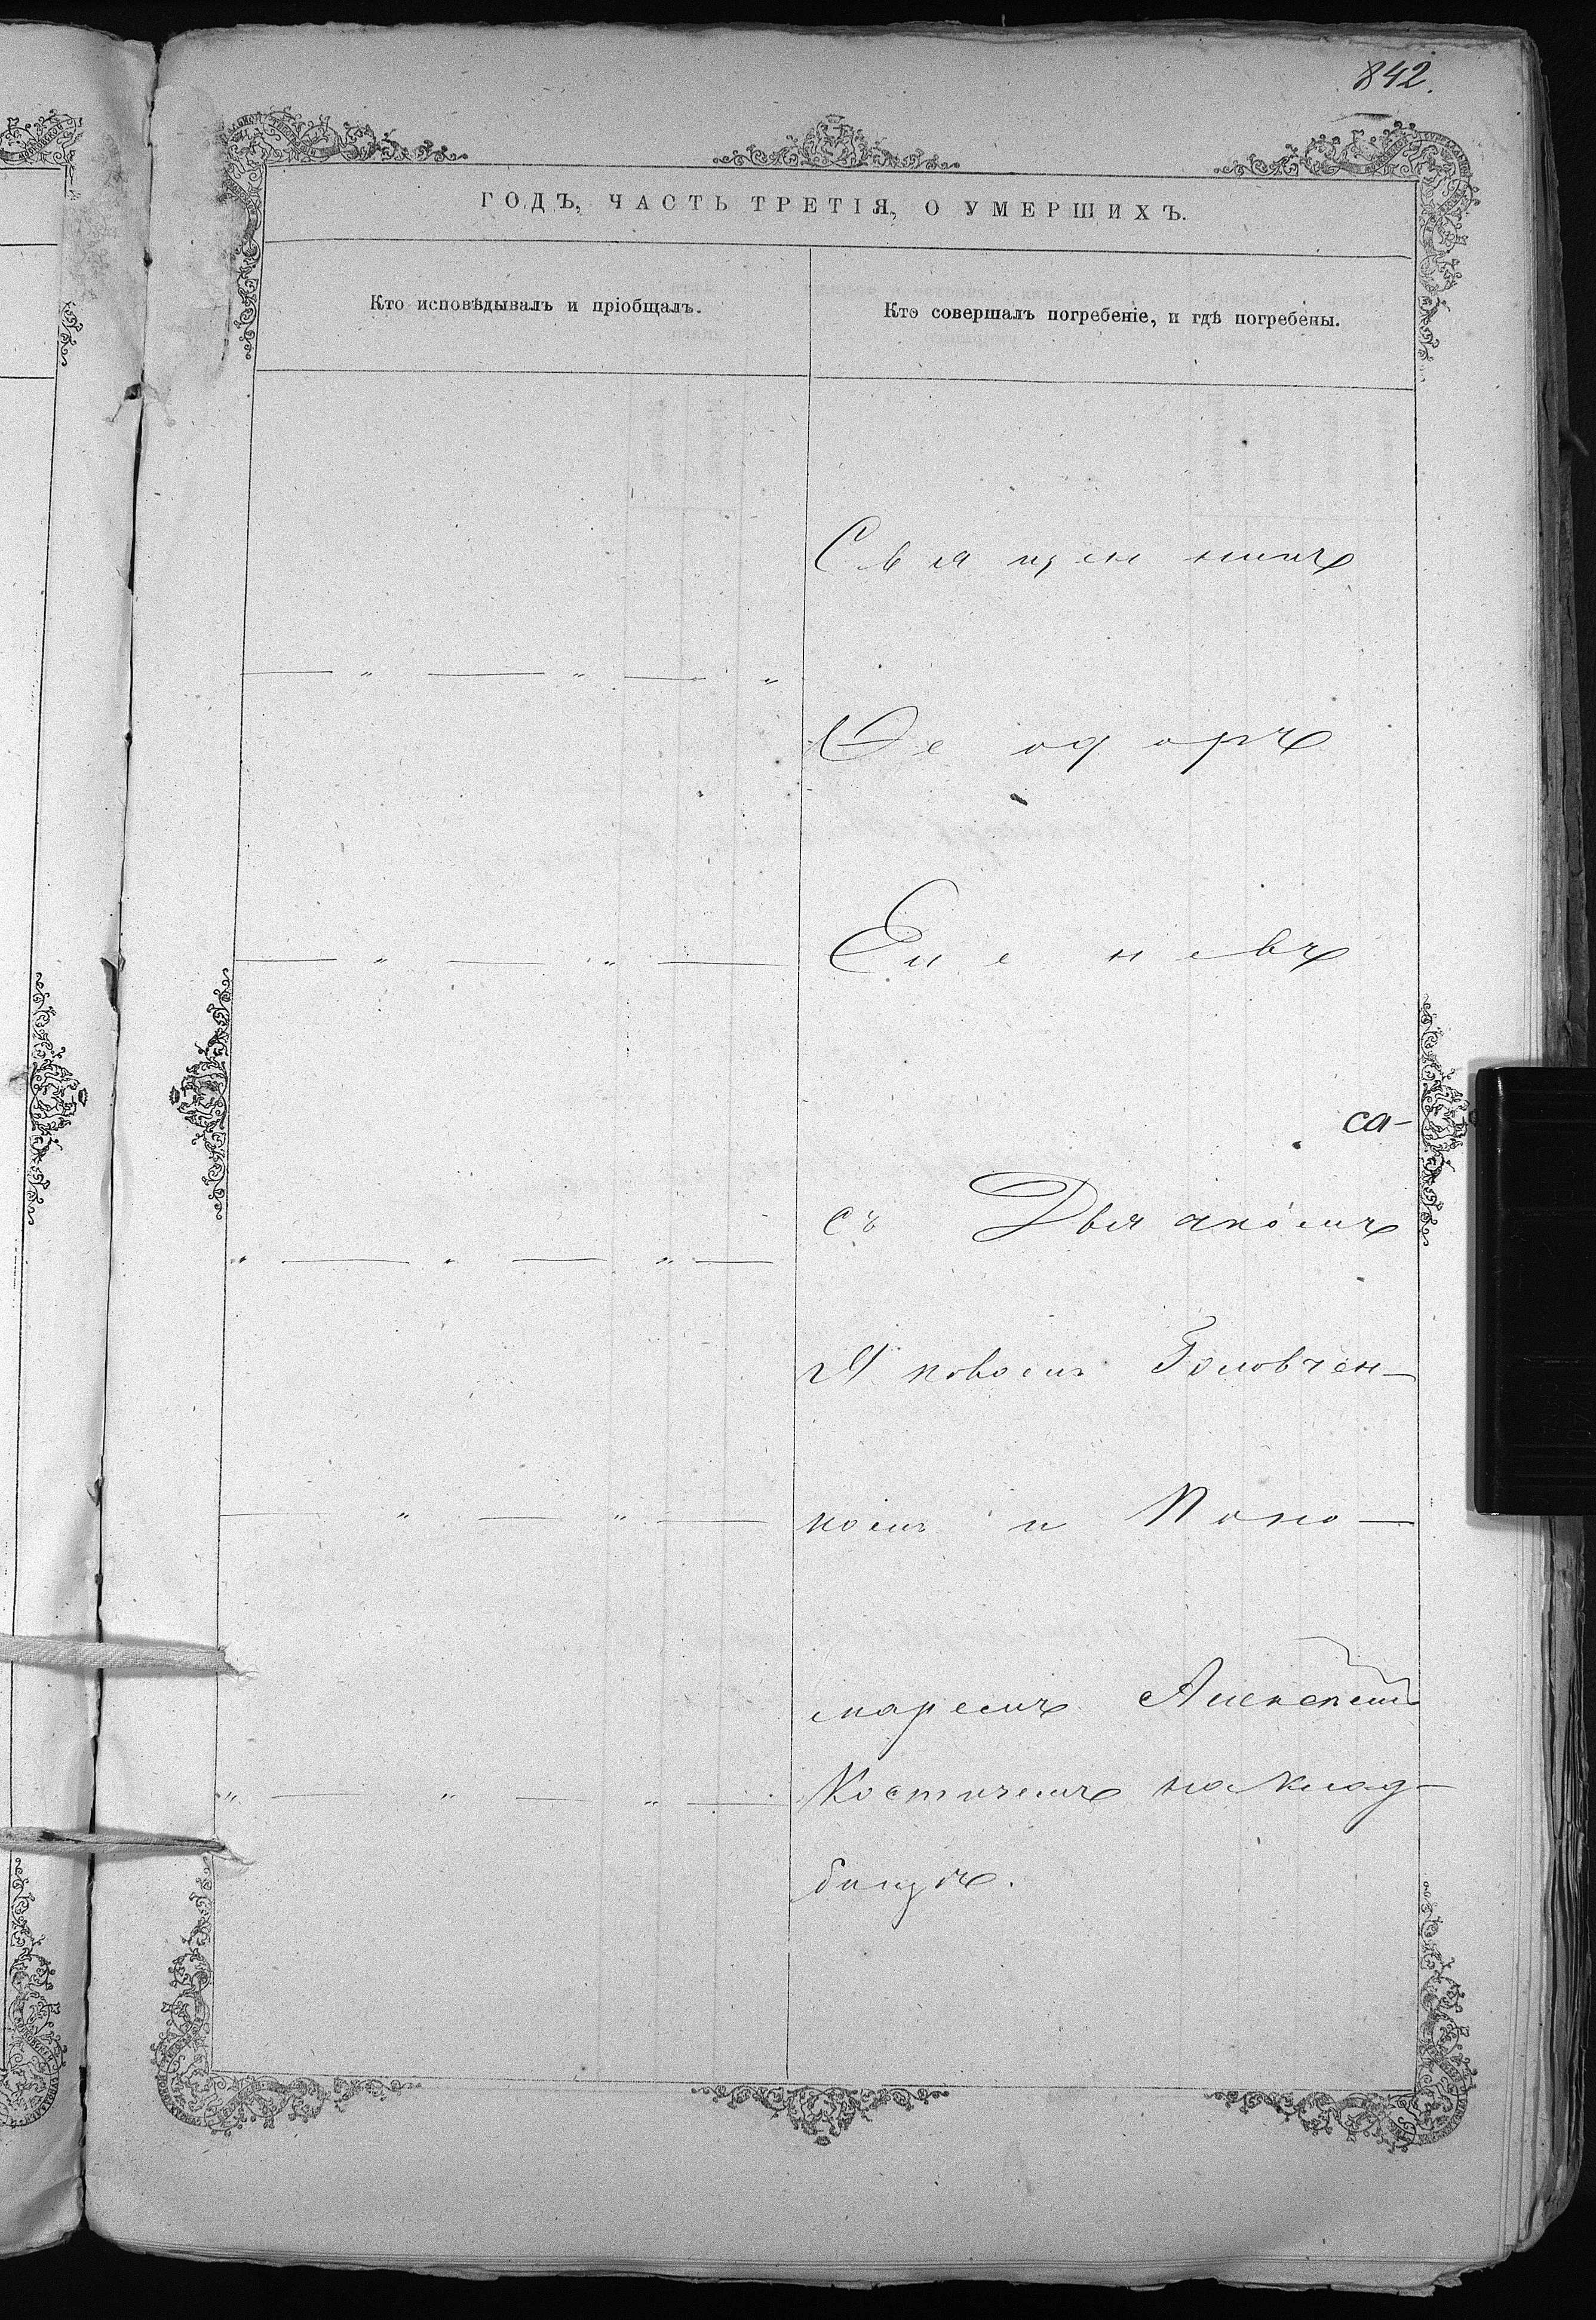 842.
ГОДЪ, ЧАСТЬ ТРЕТІЯ, О УМЕРШИХЪ.
Кто исповѣдывалъ и пріобщалъ.
Кто совершалъ погребеніе, и гдѣ погребены.
Священникъ
— " — " — "
Ѳеодоръ
— " — " —
са-
съ Дьякомъ
" — " — " —
Яковомъ Головчен-
— " — " —
комъ и Поно-
маремъ Алексѣемъ
" — " — " —
Костичемъ на клад-
бищѣ.